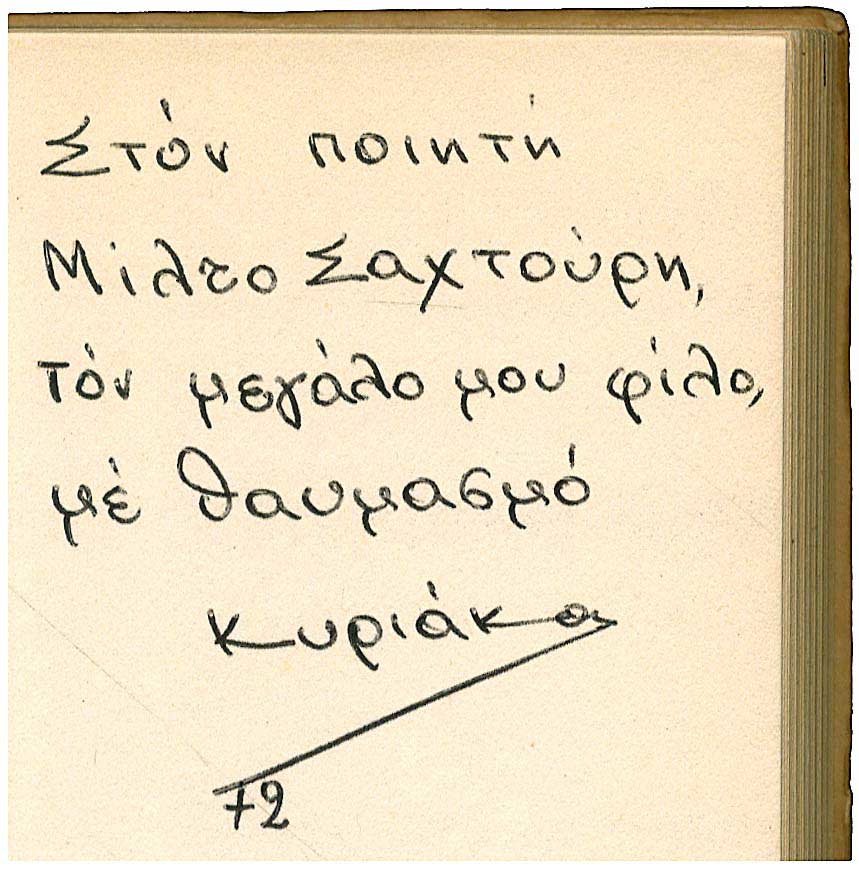 Στόν ποιητή
Μίλτο Σαχτούρη,
τόν μεγάλο μου φίλο,
μέ θαυμασμό
Κυριάκο
72